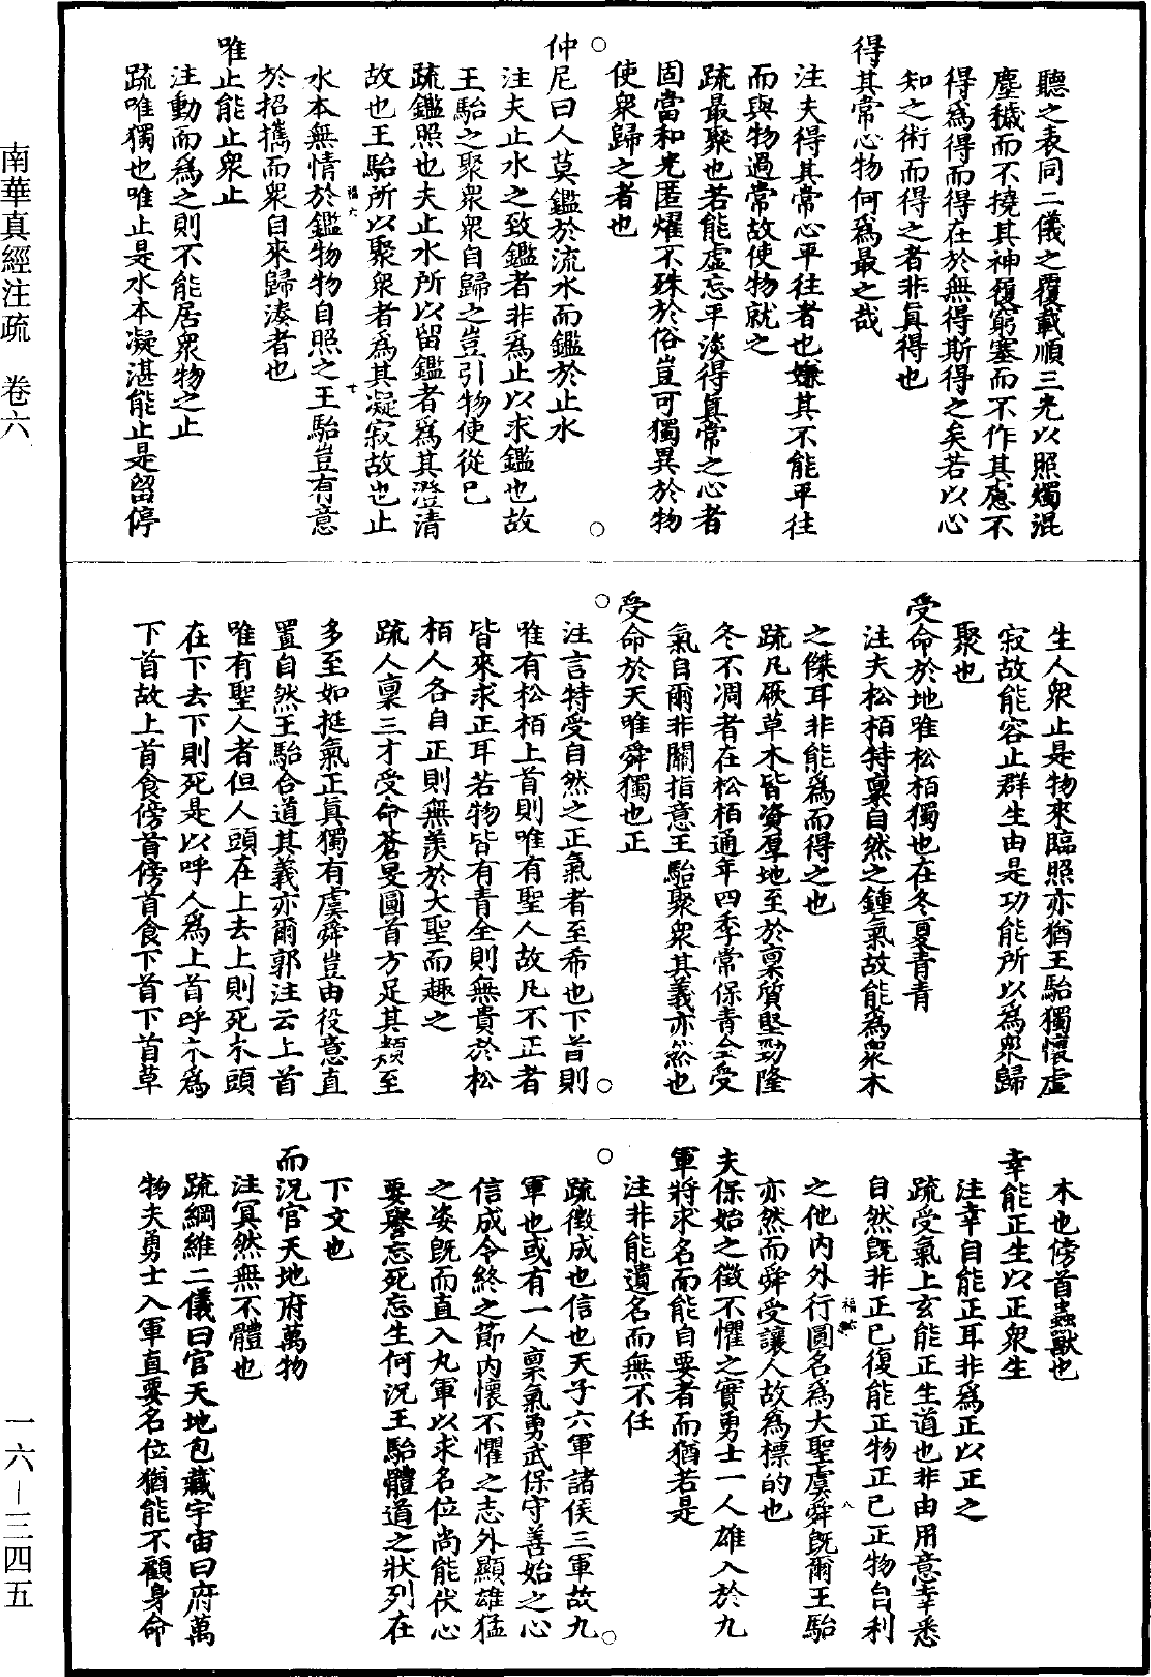 聽之表同二儀之覆載順三光以照燭混
塵穢而不撓其神履窮塞而不作其慮不
得爲得而得在於無得斯得之矣若以心
知之術而得之者非真得也
得其常心物何爲最之哉
注夫得其常心平往者也嫌其不能平往
而與物過常故使物就之
疏最聚也若能虛忘平淡得真常之心者
固當和光匿燿不殊於俗豈可獨異於物
使衆歸之者也
仲尼曰人莫鑑於流水而鑑於止水
注夫止水之致鑑者非爲止以求鑑也故
王駘之聚衆衆自歸之豈引物使從已
疏鑑照也夫止水所以留鑑者爲其澄清
故也王駘所以聚衆者爲其凝寂故也止
水本無情於鑑物物自照之王駘豈有意
於招攜而衆自來歸湊者也
唯止能止衆止
注動而爲之則不能居衆物之止
疏唯獨也唯止是水本凝湛能止是留停
生人衆止是物來臨照亦猶王駘獨懷虛
寂故能容止群生由是功能所以爲衆歸
聚也
受命於地唯松栢獨也在冬夏青青
注夫松栢特稟自然之鍾氣故能爲衆木
之傑耳非能爲而得之也
疏凡厥草木皆資厚地至於稟質堅勁隆
冬不凋者在松栢通年四季常保青全受
氣自爾非關指意王駘聚衆其義亦然也
受命於天唯舜獨也正
注言特受自然之正氣者至希也下首則
唯有松栢上首則唯有聖人故凡不正者
皆來求正耳若物皆有青全則無貴於松
栢人各自正則無羨於大聖而趣之
疏人稟三才受命蒼旻圓首方足其類至
多至如挺氣正真獨有虞舜豈由役意直
置自然王駘合道其義亦爾郭注云上首
唯有聖人者但人頭在上去上則死木頭
在下去下則死是以呼人爲上首呼木爲
下首故上首食傍首傍首食下首下首草
木也傍首蟲獸也
幸能正生以正衆生
注幸自能正耳非爲正以正之
疏受氣上玄能正生道也非由用意幸悉
自然既非正已復能正物正已正物自利
之他內外行圓名爲大聖虞舜既爾王駘
亦然而舜受讓人故爲標的也
夫保始之徵不懼之實勇士一人雄入於九
軍將求名而能自要者而猶若是
注非能遺名而無不任
疏徵成也信也天子六軍諸侯三軍故九
軍也或有一人稟氣勇武保守善始之心
信成令終之節內懷不懼之志外顯雄猛
之姿既而直入九軍以求名位尚能伏心
要譽忘死忘生何況王駘體道之狀列在
下文也
而況官天地府萬物
注冥然無不體也
疏綱維二儀曰官天地包藏宇宙曰府萬
物夫勇士入軍直要名位猶能不顧身命
南華真經注疏　卷六
一六—三四五